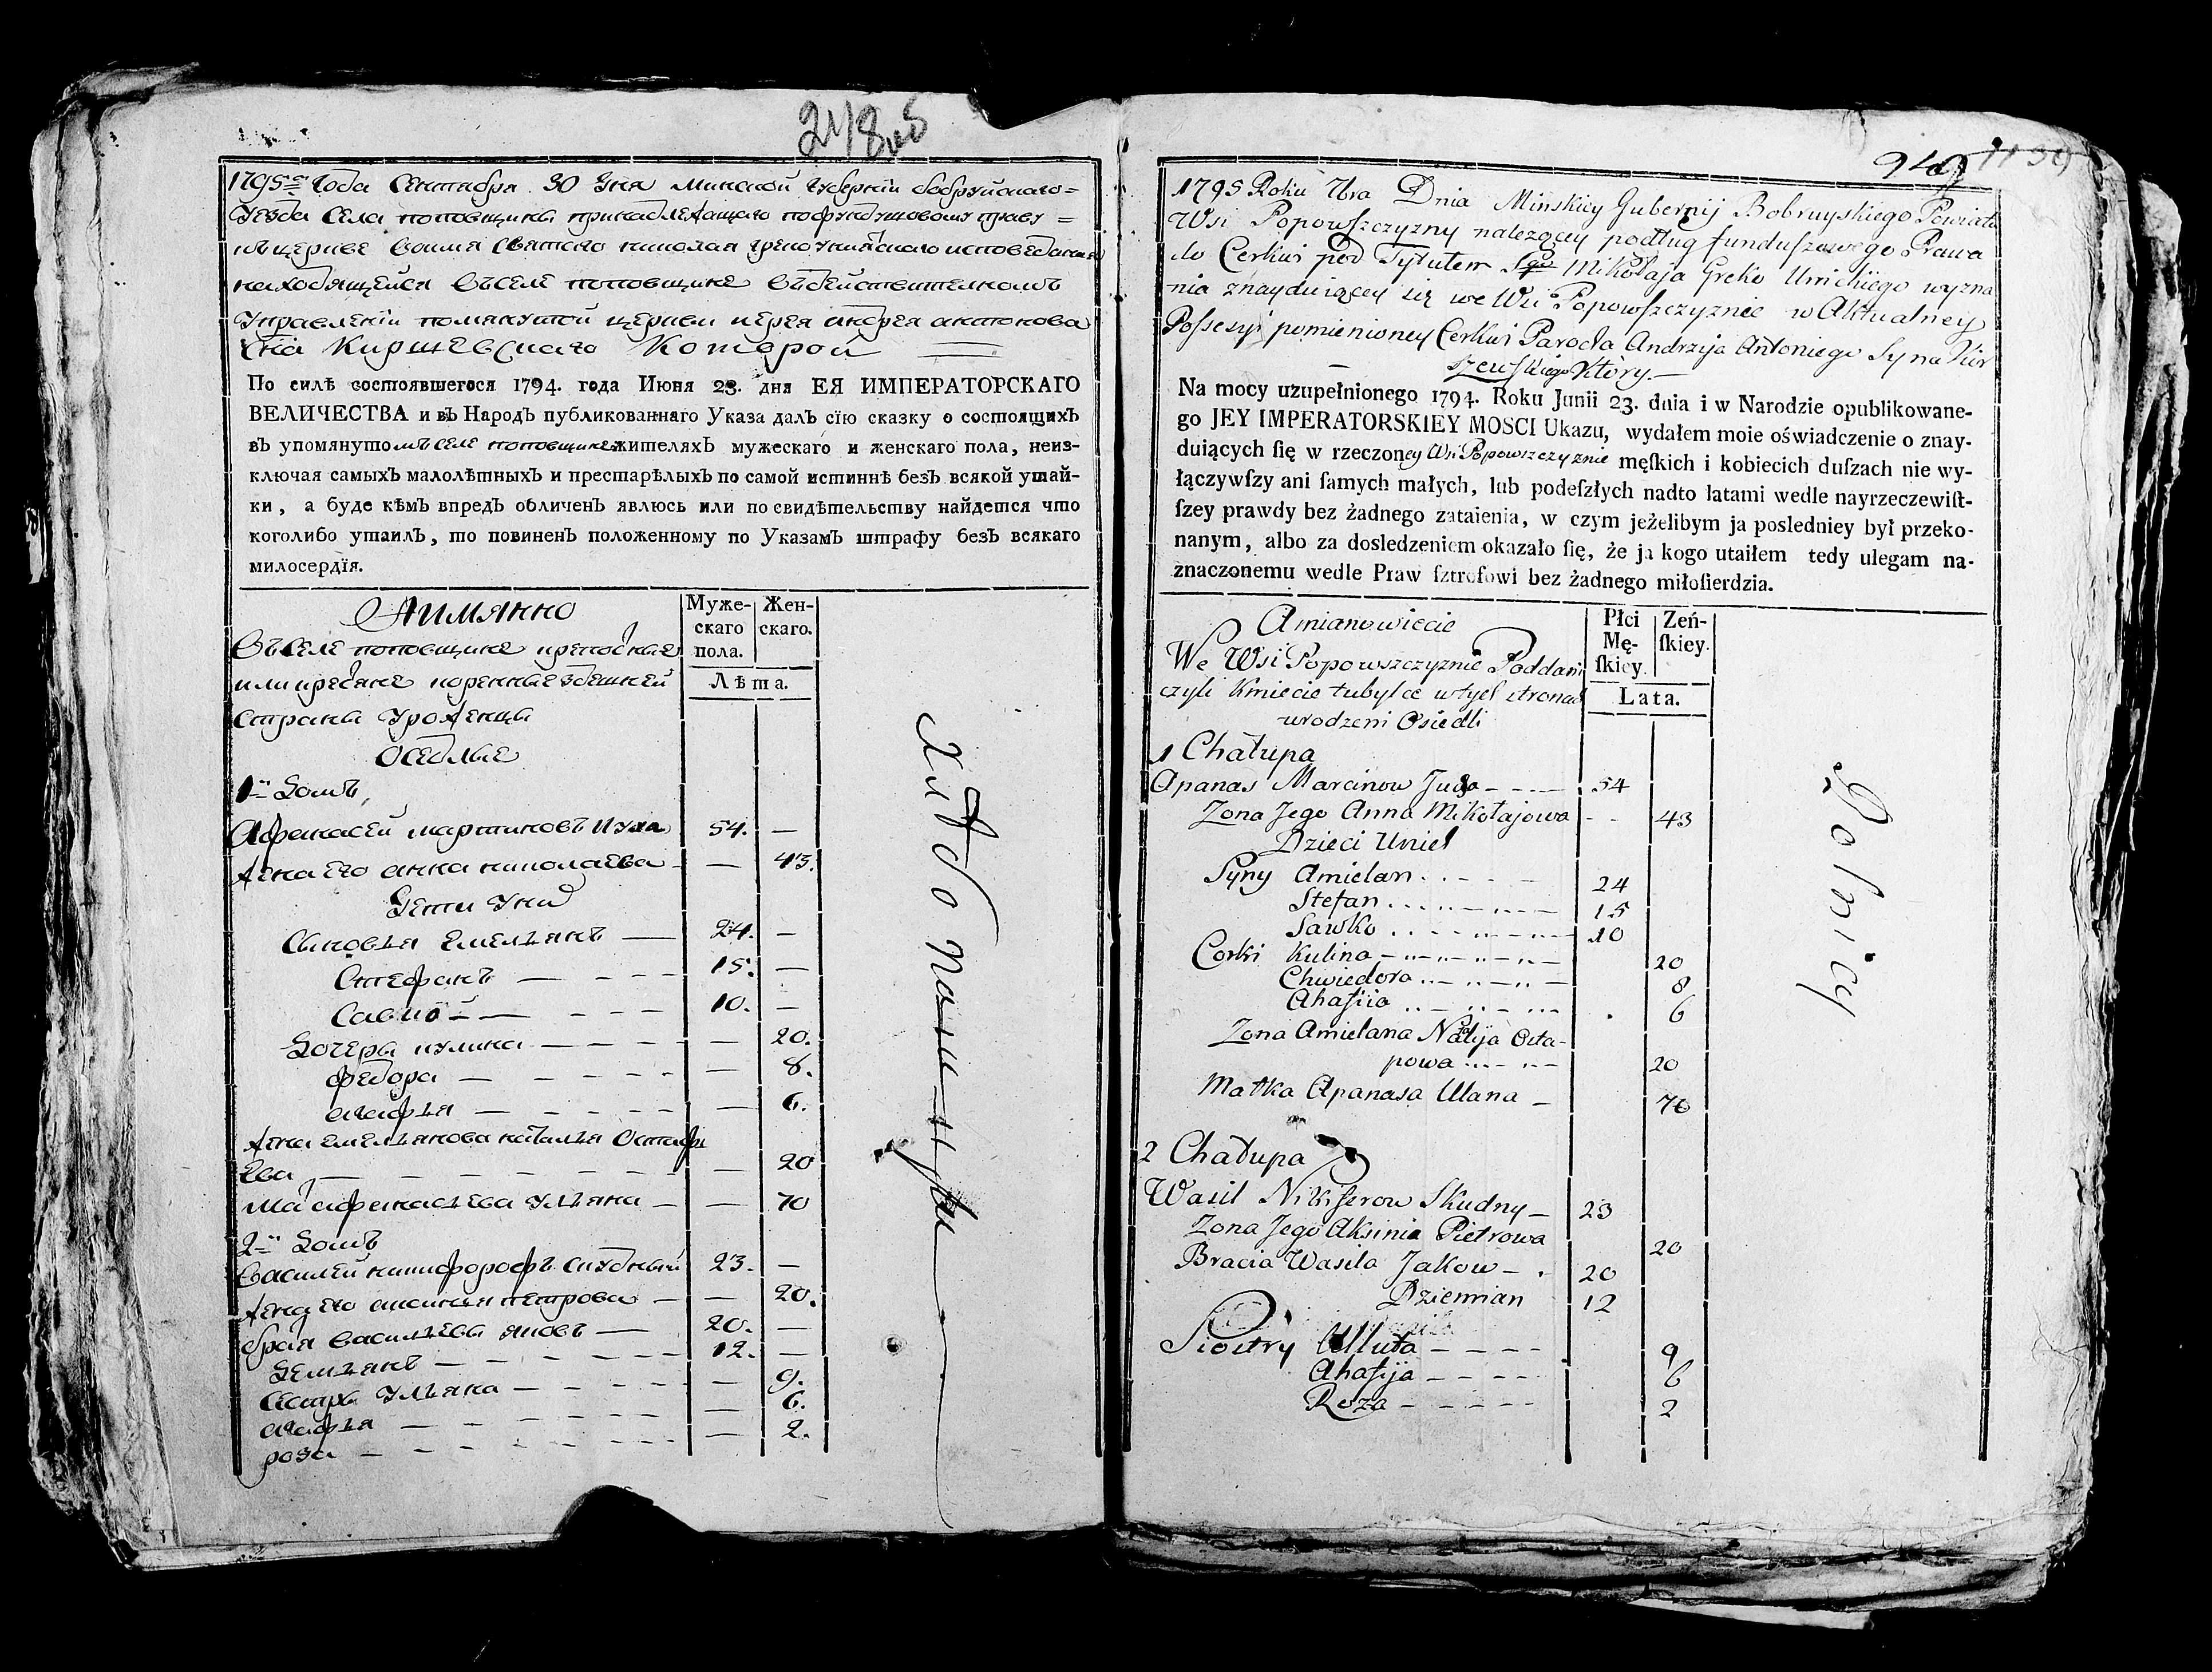 248 об
1795го Года Сентября 30 дня Минской губернїи бобруйскаго
уезда села поповщины принадлежащаго пофундушовому праву
къцеркве воимя святаго николая грекоунитскаго исповеданїя
находящейся въселе поповщине вдействителномъ
управленїи помянутой церкви иерея андрея антонова
сна Киршевскаго Которой
По силѣ состоявшегося 1794. года Июня 23. дня ЕЯ ИМПЕРАТОРСКАГО
ВЕЛИЧЕСТВА и въ Народъ публикованнаго Указа далъ сїю сказку о состоящихъ
въ упомянутомъ селе поповщине жителяхъ мужескаго и женскаго пола, неиз-
ключая самыхъ малолѣтныхъ и престарѣлыхъ по самой истиннѣ безъ всякой утай-
ки, а буде кѣмъ впредъ обличенъ явлюсь или по свидѣтельству найдется что
коголибо утаилъ, то повиненъ положенному по Указамъ штрафу безъ всякаго
милосердїя.
Аимянно
Муже-
скаго
пола.
Жен-
скаго.
Лѣта.
въселе поповщине крепосные
или кресяне коренные здешней
страны уроженцы
оседлые
1й домъ
Афанасей мартиновъ 54. —
жена его анна николаева — 43.
Дети унид
сыновья емельянъ 24. —
Стефанъ 15. —
Савко 10. —
Дочеры кулина — 20.
федора — 8.
агафья — 6.
жена емельянова наталья Остафи
ева — 20
ма афанасьева ульяна — 70
2й домъ
василей никифорофъ скудный 23. —
жена его аксинья петрова — 20.
братя васильевы яковъ 20. —
Демьянъ 12. —
сестры ульяна — 9.
агафья — 6.
роза — 2.
249
1795 Roku 7bra Dnia Minskiey Gubernij Bobruyskiego Powiatu
Wsi Popowszczyzny nalezącey podług funduszowego Prawa
do Cerkwi pod Tytułem Sgo Mikołaja Greko Unickiego wyzna
nia znayduiącey się we Wsi Popowszczyznie w Aktualney
Possesyi pomienioney Cerkwi Parocha Andrzija Antoniego Syna Kir
szewskiego Ktory.
Na mocy uzupełnionego 1794. Roku Junii 23. dnia i w Narodzie opublikowane-
go JEY IMPERATORSKIEY MOSCI Ukazu, wydałem moie oświadczenie o znay-
duiących się w rzeczoney Wsi Popowszczyznie męskich i kobiecich duszach nie wy-
łączywszy ani samych małych, lub podeszłych nadto latami wedle nayrzeczewist-
szey prawdy bez żadnego zataienia, w czym jeżelibym ja posledniey był przeko-
nanym, albo za dosledzeniem okazało się, że ja kogo utaiłem tedy ulegam na-
znaczonemu wedle Praw sztrofowi bez żadnego miłosierdzia.
Amianowiecie
Płci
Mę-
skiey.
Zeń-
skiey.
Lata.
We Wsi Popowszczyznie Poddani
czyli Kmiecie tubylce wtych stronach
urodzeni Osiedli
1 Chałupa
Apanas Marcinow 54
Zona Jego Anna Mikołajowa 43
Dzieci Unici
Syny Amielan 24
Stefan 15
Sawko 10
Corki Kulina 20
Chwiedora 8
Ahafiia 6
Zona Amielana Natalija Osta-
powa 20
Matka Apanasa Ulana 70
2 Chałupa
Wasil Nikiferow Skudny 23
Zona Jego Aksinia Pietrowa 20
Bracia Wasila Jakow 20
Dziemian 12
Siostry 9
Ahafija 6
Roza 2